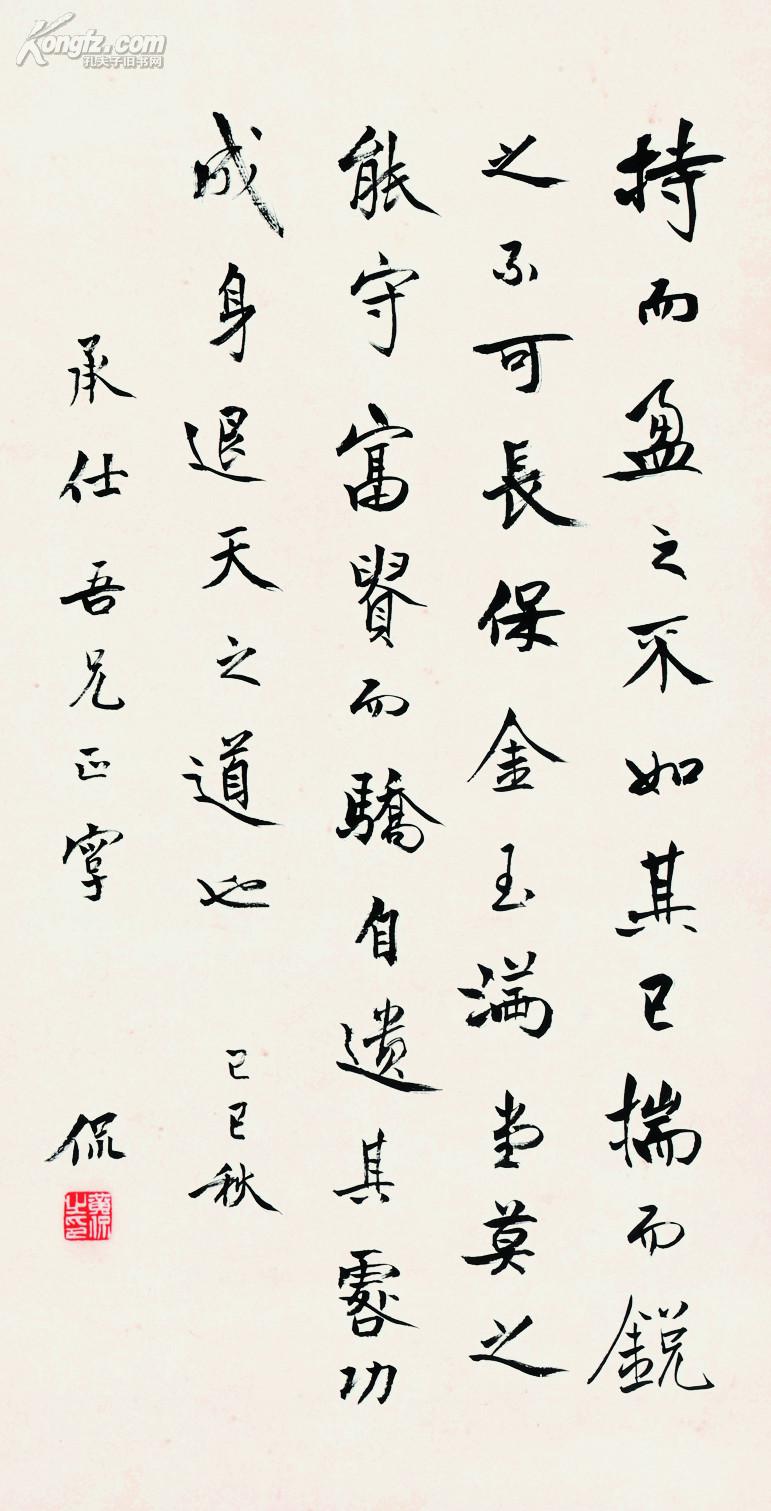 Kongfz.com
孔夫子旧书网
持而盈之不如其已揣而銳
之不可長保金玉滿堂莫之
能守富貴而驕自遺其咎功
成身退天之道也 己巳秋
承仕吾兄正 侃
黃侃之印